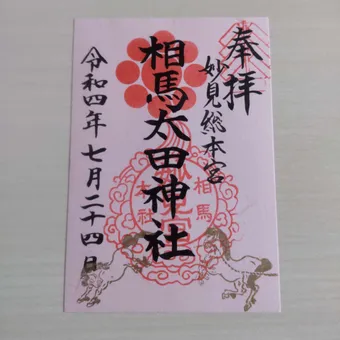 奉拝
妙見総本宮
相馬太田神社
令和四年七月二十四日
相馬